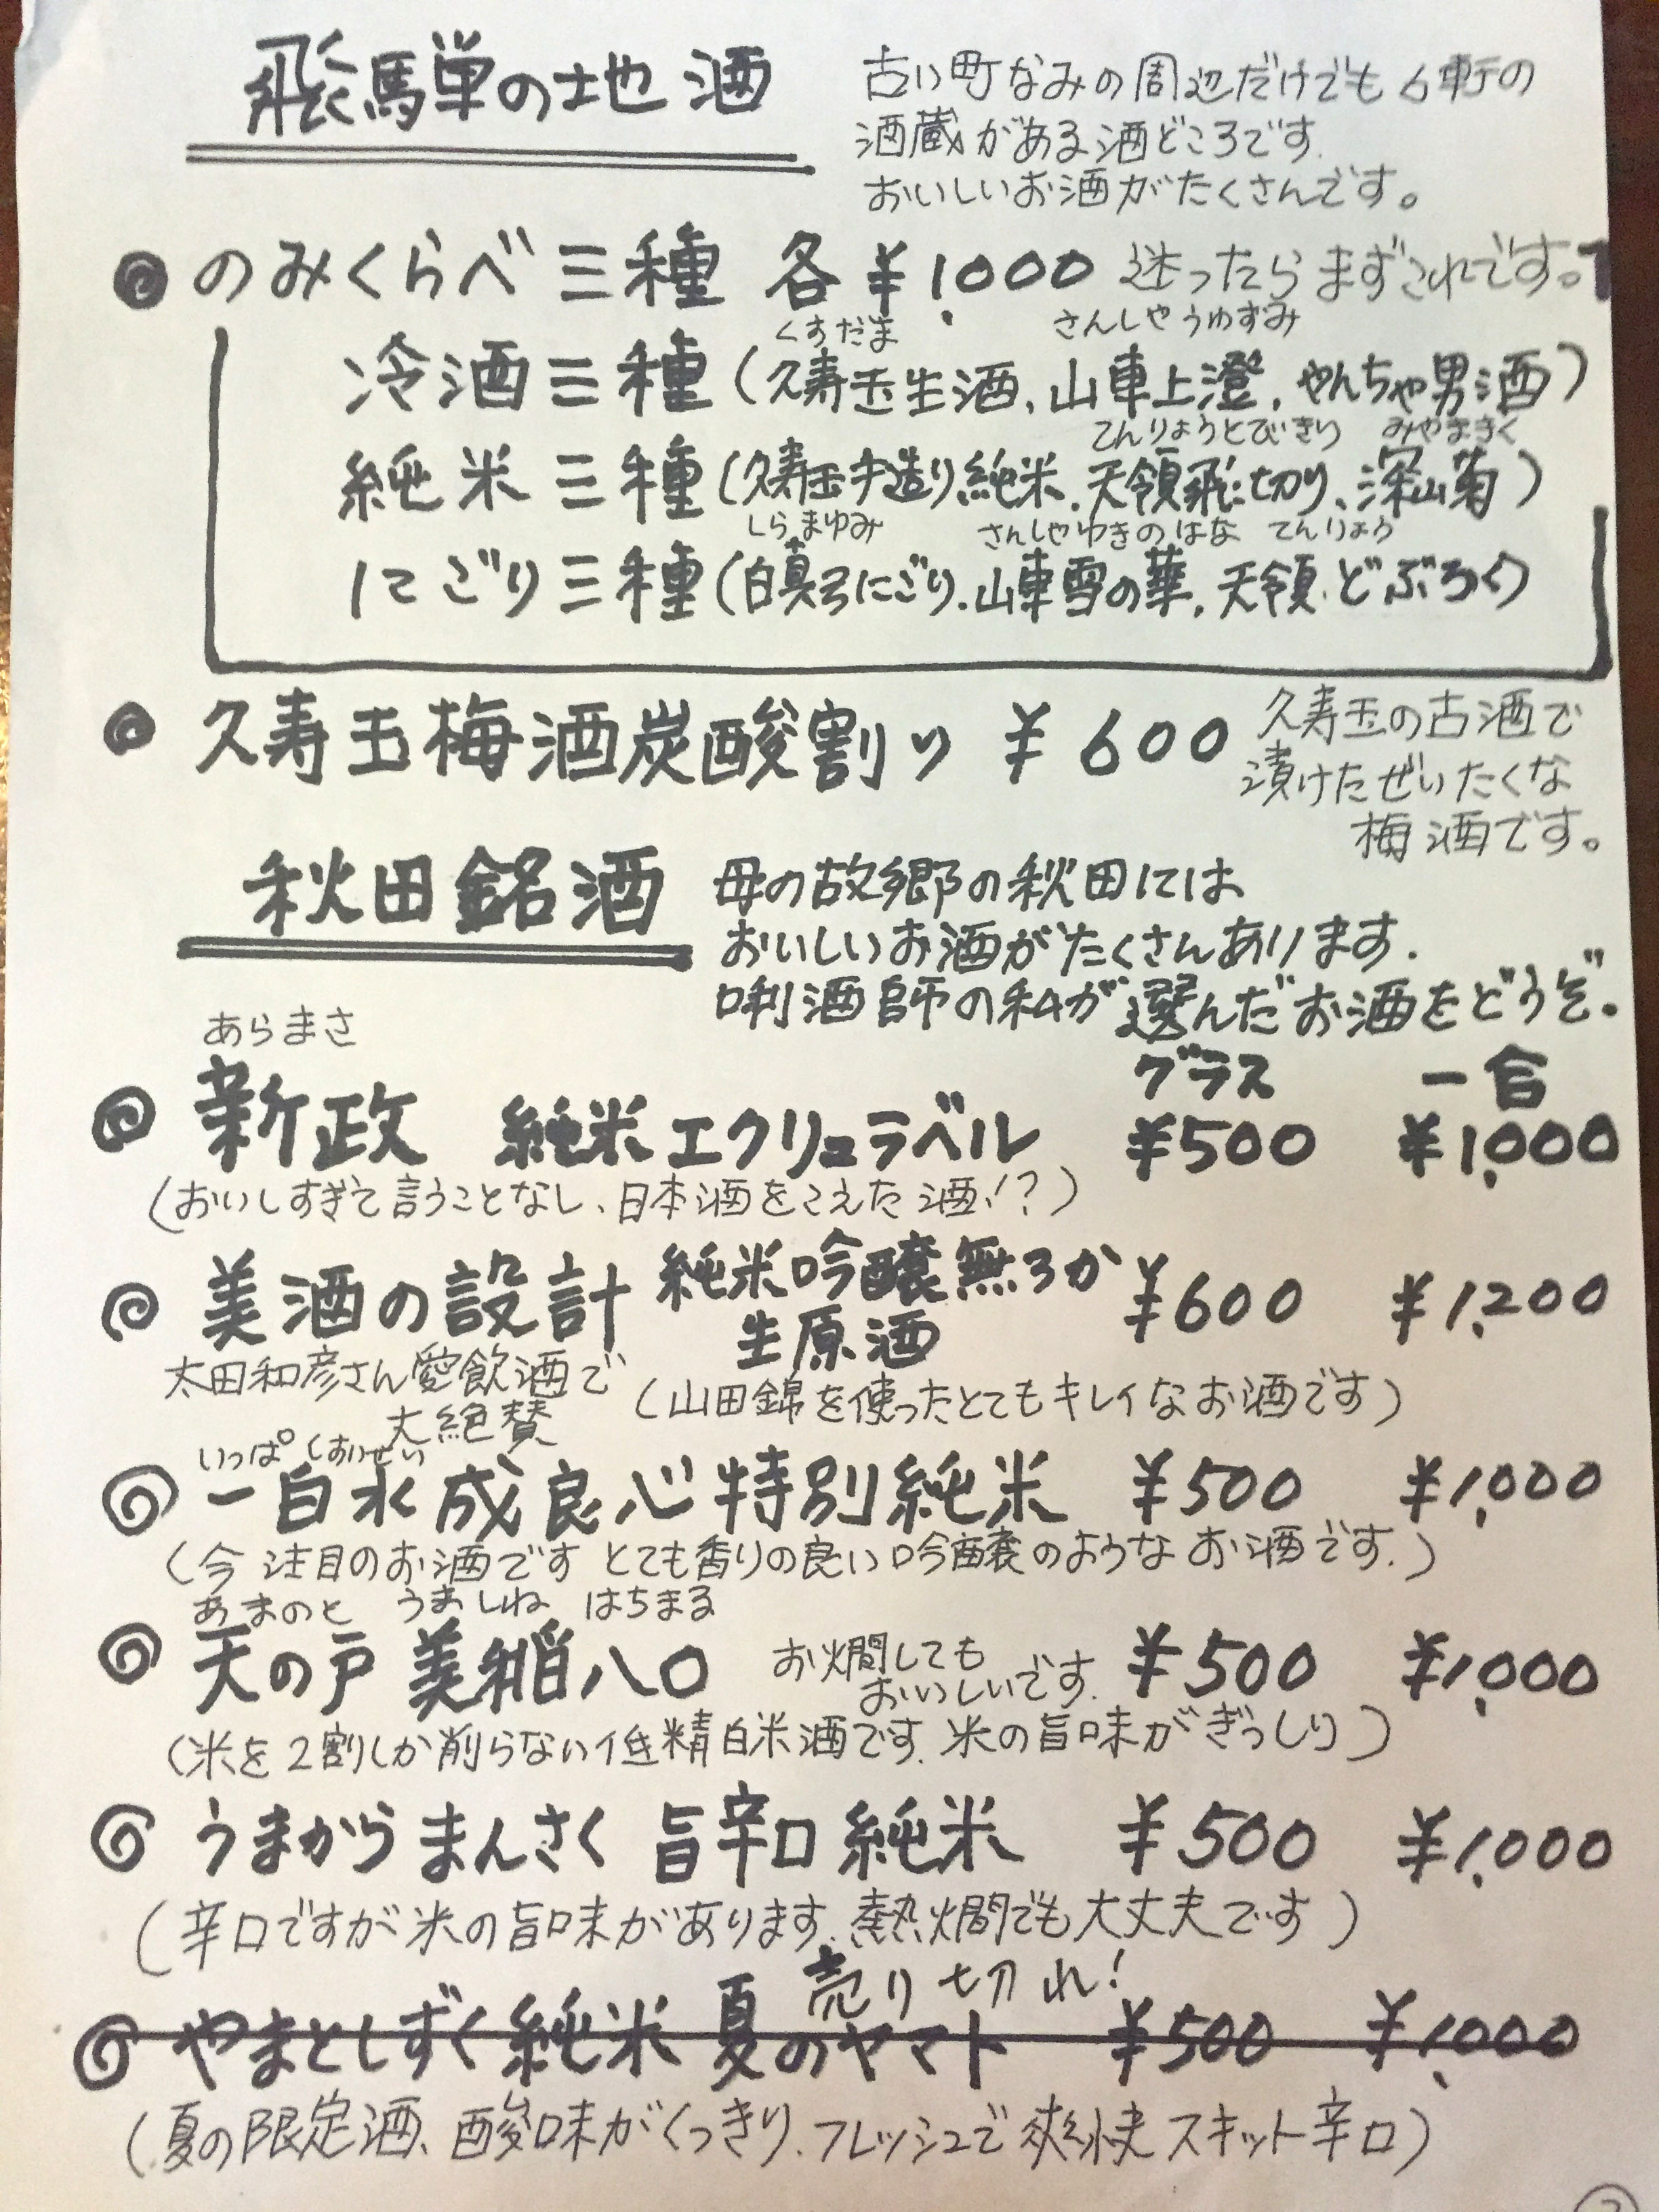 飛馬単の地酒
古い町なみの周辺だけでも6軒の
酒蔵がある酒どころです.
おいしいお酒がたくさんです。
のみくらべ三種 各¥1,000 迷ったらまずこれです。
くすだま さんしゃうわずみ
冷酒三種(久寿玉生酒、山車上澄、やんちゃ男酒)
てんりょうとびきり みやまぎく
純米三種(久寿玉手造り純米、天領飛切り、深山菊)
しらまゆみ さんしゃゆきのはな てんりょう
にごり三種(白真弓にごり、山車雪の華、天領どぶろく)
久寿玉梅酒炭酸割り ¥600
久寿玉の古酒で
漬けたぜいたくな
梅酒です。
秋田銘酒
母の故郷の秋田には
おいしいお酒がたくさんあります.
唎酒師の私が選んだお酒をどうぞ.
グラス 一合
あらまさ
新政 純米エクリュラベル ¥500 ¥1,000
(おいしすぎて言うことなし、日本酒をこえた酒!?)
美酒の設計 純米吟醸無ろか ¥600 ¥1,200
生原酒
太田和彦さん愛飲酒で
大絶賛
(山田錦を使ったとてもキレイなお酒です)
いっぱくすいせい
一白水成良心特別純米 ¥500 ¥1,000
(今注目のお酒です とても香りの良い吟醸のようなお酒です.)
あまのと うましね はちまる
天の戸 美稲八〇 お燗しても ¥500 ¥1,000
おいしいです.
(米を2割しか削らない低精白米酒です. 米の旨味がぎっしり)
うまからまんさく 旨辛口純米 ¥500 ¥1,000
(辛口ですが米の旨味があります. 熱燗でも大丈夫です)
売り切れ!
やまとしずく純米 夏のヤマト ¥500 ¥1,000
(夏の限定酒、酸味がくっきり、フレッシュで爽快スキット辛口)